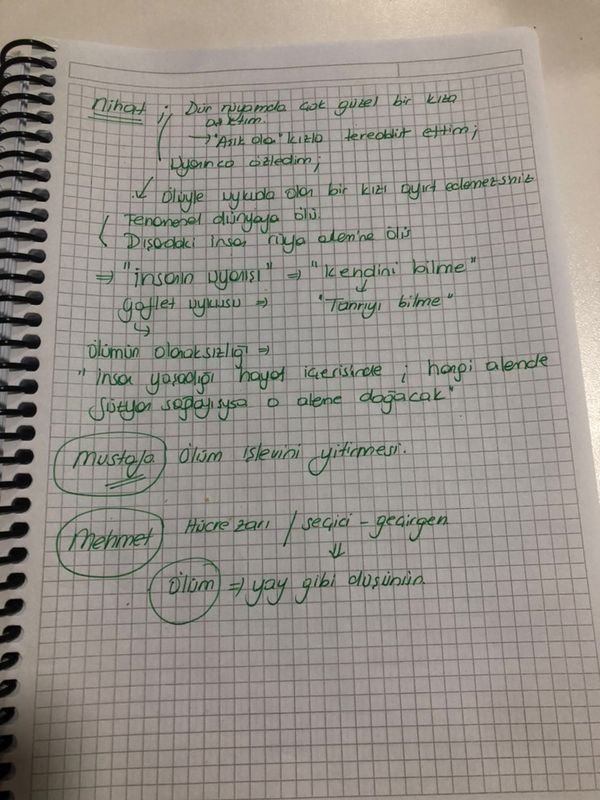 Nihat ; Dün rüyamda çok güzel bir kıza
aşıktım.
→ "Aşık olan" kızla tereddüt ettim;
Uyanınca özledim;
↙ Ölüyle uykuda olan bir kızı ayırt edemezsiniz
Fenomenal dünyaya ölü.
Dışadaki insan rüya alemine ölü
⇒ "insanın uyanışı" ⇒ "Kendini bilme"
↓
gaflet uykusu ⇒ "Tanrıyı bilme"
↳
Ölümün olanaksızlığı ⇒
"insan yaşadığı hayat içerisinde ; hangi alemde
o aleme doğacak"
Mustafa Ölüm işlevini yitirmesi.
Mehmet Hücre zarı / seçici - geçirgen
⇓
Ölüm ⇒ yay gibi düşünün.